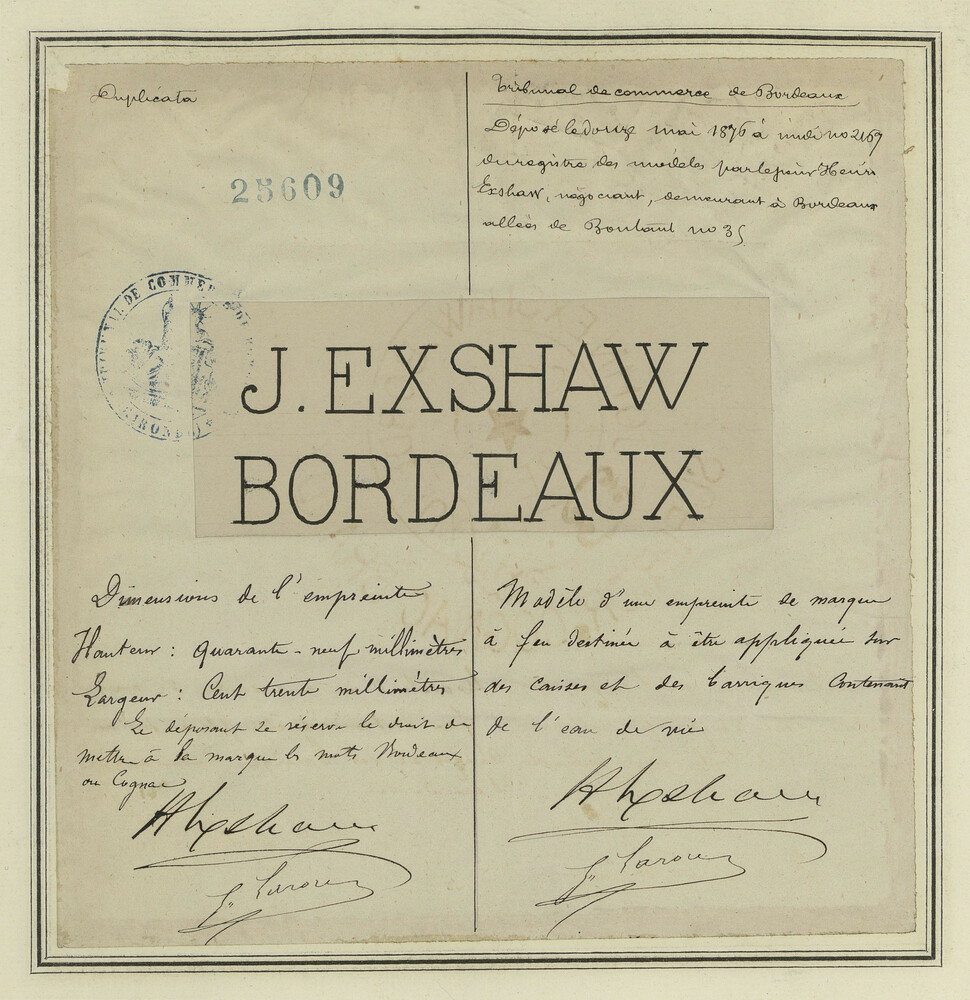 Duplicata
25609
Tribunal de commerce de Bordeaux
Déposé le douze mai 1876 à midi no 2169
du registre des modèles par le sieur Henri
Exshaw, négociant, demeurant à Bordeaux
allées de Boutaut no 35
TRIBUNAL DE COMMERCE DE
GIRONDE
J. EXSHAW
BORDEAUX
Dimensions de l'empreinte
Hauteur : Quarante-neuf millimètres
Largeur : Cent trente millimètres
Le déposant se réserve le droit de
mettre à la marque les mots Bordeaux
ou Cognac
HExshaw
Modèle d'une empreinte de marque
à feu destinée à être appliquée sur
des caisses et des barriques contenant
de l'eau de vie
HExshaw